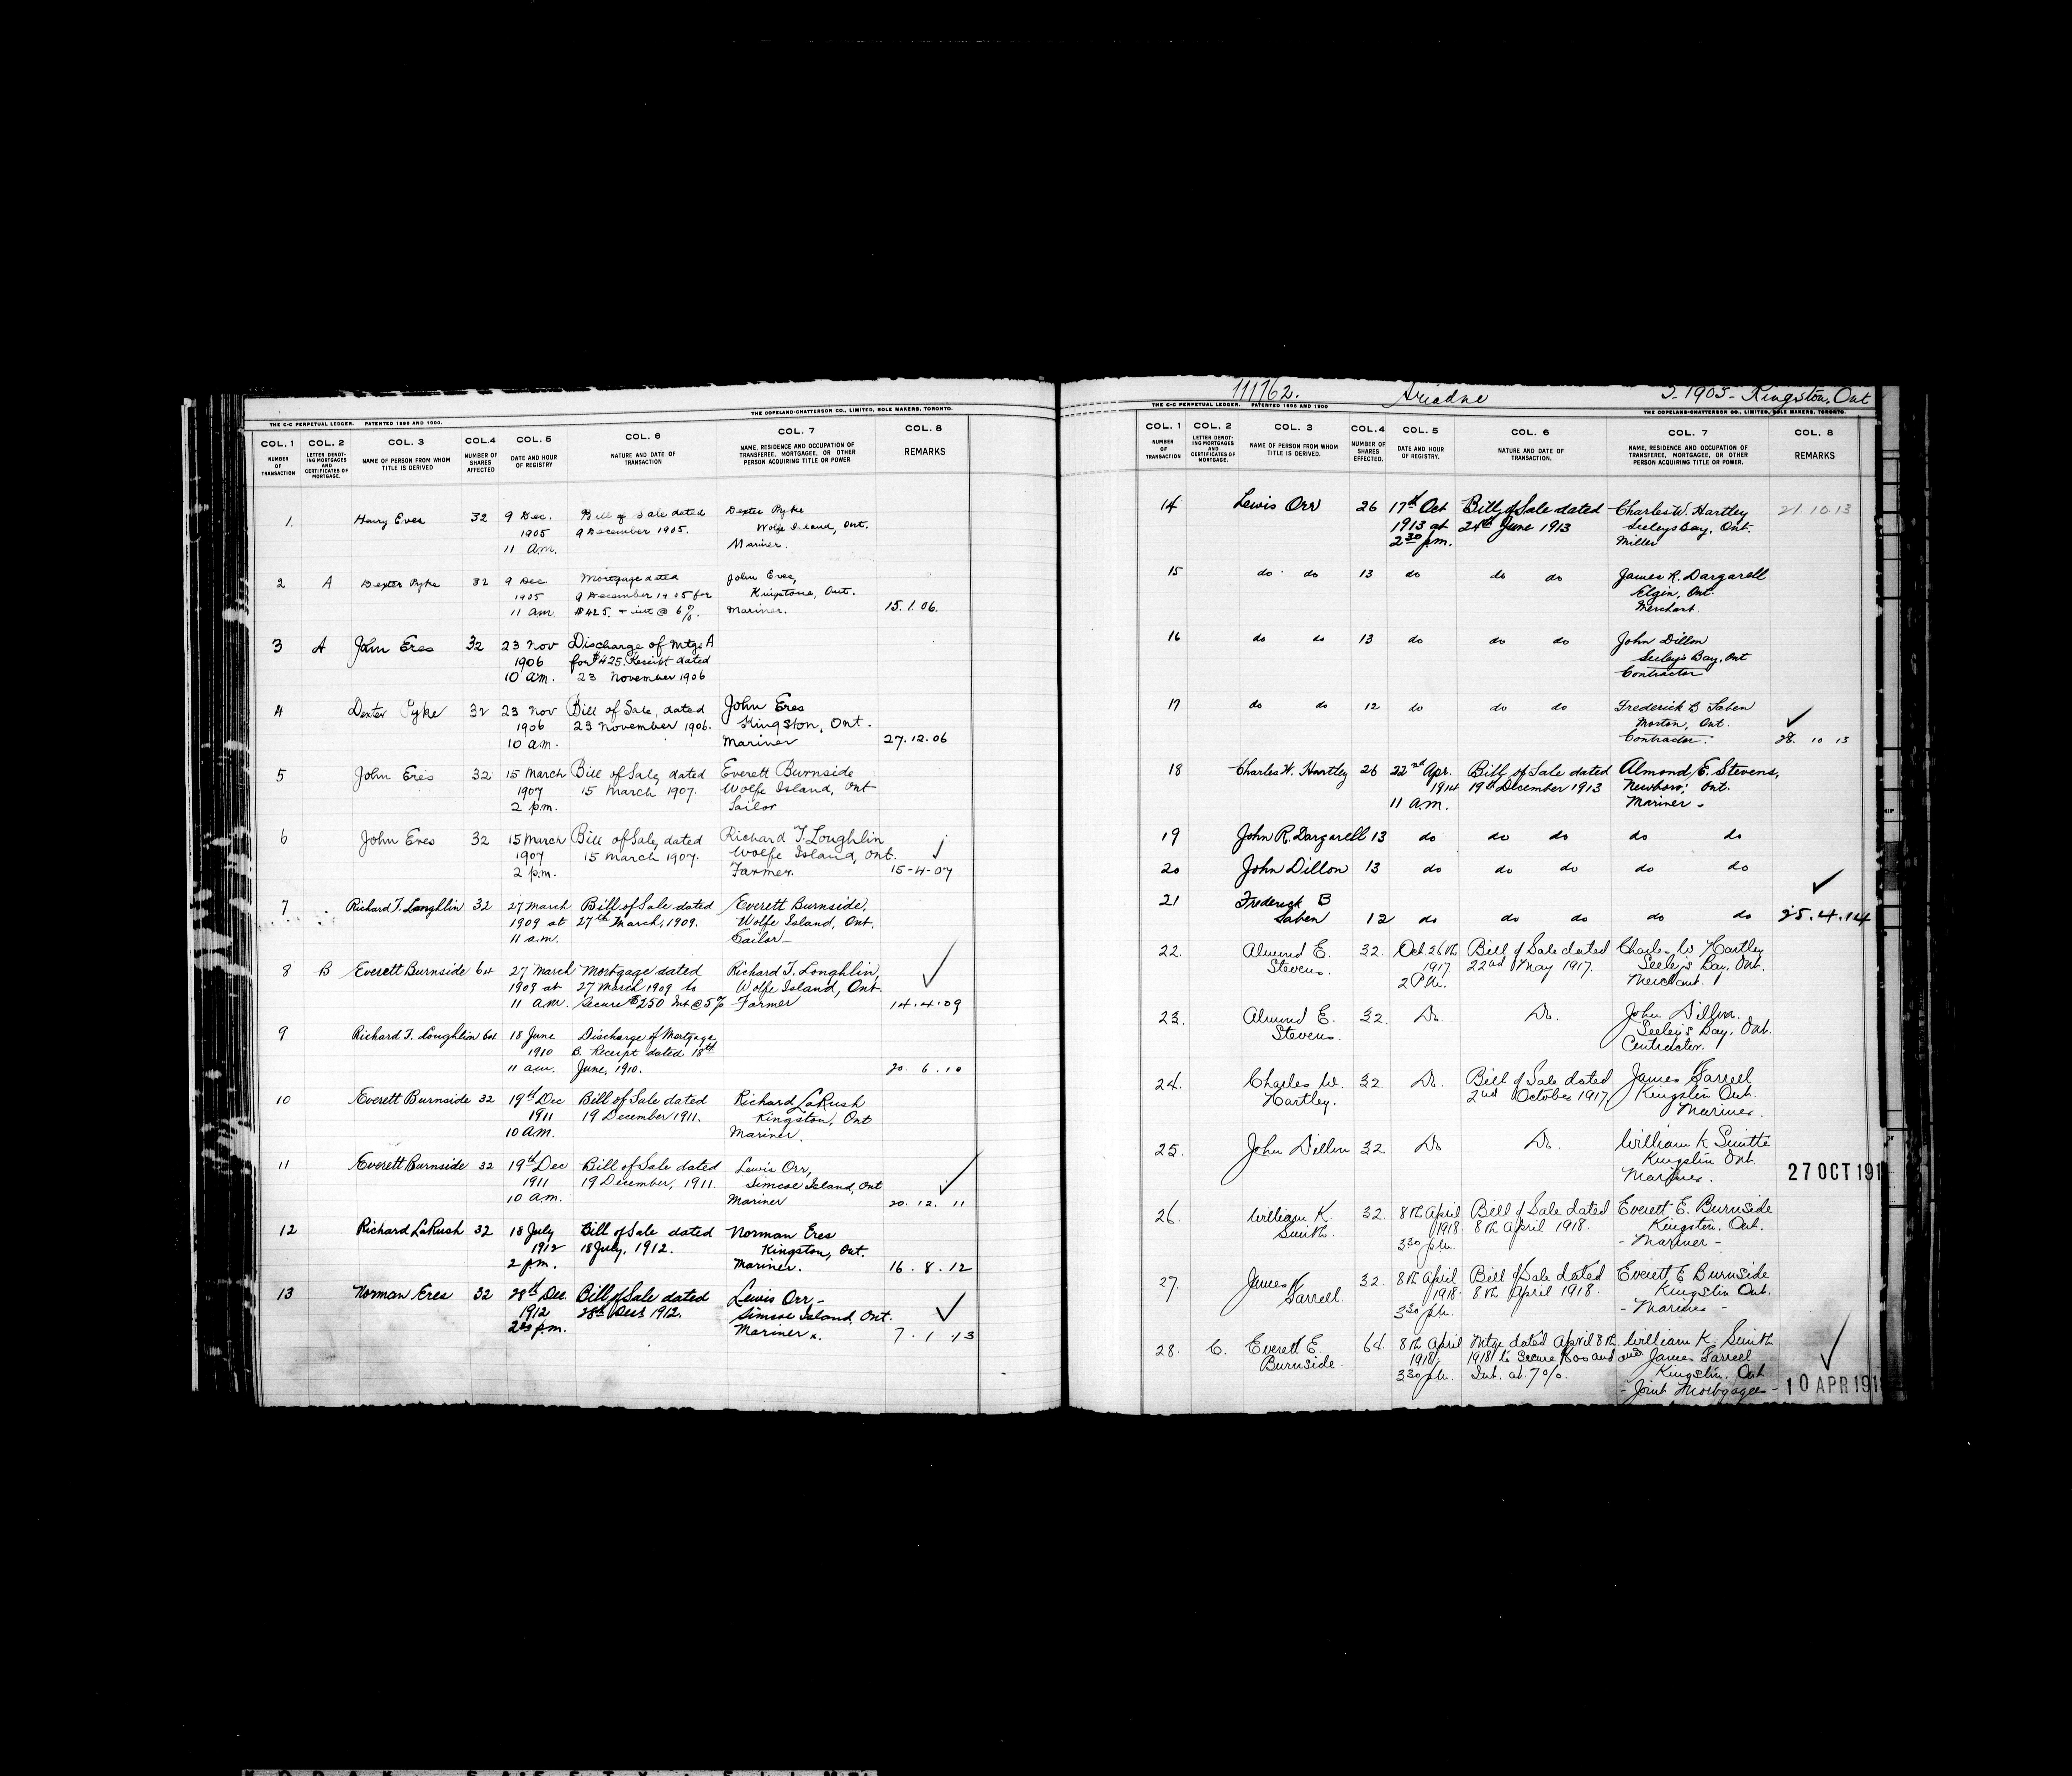 THE C-C PERPETUAL LEDGER. PATENTED 1896 AND 1900. THE COPELAND-CHATTERSON CO., LIMITED, SOLE MAKERS, TORONTO.
COL. 1 COL. 2 COL. 3 COL. 4 COL. 5 COL. 6 COL. 7 COL. 8
NUMBER OF TRANSACTION LETTER DENOTING MORTGAGES AND CERTIFICATES OF MORTGAGE. NAME OF PERSON FROM WHOM TITLE IS DERIVED NUMBER OF SHARES AFFECTED DATE AND HOUR OF REGISTRY NATURE AND DATE OF TRANSACTION NAME, RESIDENCE AND OCCUPATION OF TRANSFEREE, MORTGAGEE, OR OTHER PERSON ACQUIRING TITLE OR POWER REMARKS
1. Henry Eves 32 9 Dec. Bill of Sale dated Dexter Pyke
1905 9 December 1905. Wolfe Island, Ont.
11 a.m. Mariner.
2 A Dexter Pyke 32 9 Dec Mortgage dated John Eves,
1905 9 December 1905 for Kingston, Ont.
11 am $425. + int @ 6%. Mariner. 15.1.06.
3 A John Eves 32 23 Nov Discharge of Mtge A
1906 for $425. Receipt dated
10 am. 23 November 1906
4 Dexter Pyke 32 23 Nov Bill of Sale, dated John Eves
1906 23 November 1906. Kingston, Ont.
10 am. Mariner 27.12.06
5 John Eves 32 15 March Bill of Sale, dated Everett Burnside
1907 15 March 1907. Wolfe Island, Ont
2 p.m. Sailor
6 John Eves 32 15 March Bill of Sale, dated Richard T. Loughlin
1907 15 March 1907. Wolfe Island, Ont.
2 p.m. Farmer. 15-4-07
7 Richard T. Loughlin 32 27 March Bill of Sale dated Everett Burnside,
1909 at 27th March, 1909. Wolfe Island, Ont.
11 a.m. Sailor
8 B Everett Burnside 64 27 March Mortgage dated Richard T. Loughlin,
1909 at 27 March 1909 to Wolfe Island, Ont.
11 a.m. Secure $250 Int @ 5% Farmer 14.4.09
9 Richard T. Loughlin 64 18 June Discharge of Mortgage
1910 B. Receipt dated 18th
11 a.m. June, 1910. 20.6.10
10 Everett Burnside 32 19th Dec Bill of Sale dated Richard LaRush
1911 19 December 1911. Kingston, Ont
10 A.M. Mariner.
11 Everett Burnside 32 19th Dec Bill of Sale dated Lewis Orr,
1911 19 December, 1911. Simcoe Island, Ont
10 a.m. Mariner 20.12.11
12 Richard LaRush 32 18 July Bill of Sale dated Norman Eves
1912 18 July, 1912. Kingston, Ont.
2 p.m. Mariner. 16.8.12
13 Norman Eves 32 28th Dec. Bill of Sale dated Lewis Orr -
1912 28th Dec 1912. Simcoe Island, Ont.
2 30 p.m. Mariner. 7.1.13
111762. Ariadne 5-1903- Kingston, Ont
THE C-C PERPETUAL LEDGER. PATENTED 1896 AND 1900 THE COPELAND-CHATTERSON CO., LIMITED, SOLE MAKERS, TORONTO.
COL. 1 COL. 2 COL. 3 COL. 4 COL. 5 COL. 6 COL. 7 COL. 8
NUMBER OF TRANSACTION LETTER DENOTING MORTGAGES AND CERTIFICATES OF MORTGAGE. NAME OF PERSON FROM WHOM TITLE IS DERIVED. NUMBER OF SHARES EFFECTED. DATE AND HOUR OF REGISTRY. NATURE AND DATE OF TRANSACTION. NAME, RESIDENCE AND OCCUPATION OF TRANSFEREE, MORTGAGEE, OR OTHER PERSON ACQUIRING TITLE OR POWER. REMARKS
14 Lewis Orr 26 17th Oct Bill of Sale dated Charles W. Hartley 21.10.13
1913 at 24th June 1913 Seeleys Bay, Ont.
2 30 p.m. Miller
15 do do 13 do do do James R. Dargarell
Elgin, Ont.
Merchant.
16 do do 13 do do do John Dillon
Seeley's Bay, Ont
Contractor
17 do do 12 do do do Frederick B Saben
Morton, Ont.
Contractor. 28.10.13
18 Charles W. Hartley 26 22nd Apr. Bill of Sale dated Almond E. Stevens,
1914 19th December 1913 Newboro, Ont.
11 A.M. Mariner.
19 John R. Dargarell 13 do do do do do
20 John Dillon 13 do do do do do
21 Frederick B
Saben 12 do do do do do 25.4.14
22. Almond E. 32. Oct 26th Bill of Sale dated Charles W Hartley
Stevens. 1917. 22nd May 1917. Seeley's Bay, Ont.
2 P.M. Merchant.
23. Almond E. 32. Do. Do. John Dillon.
Stevens. Seeley's Bay, Ont.
Contractor.
24. Charles W. 32. Do. Bill of Sale dated James Farrell
Hartley. 2nd October 1917, Kingston Ont.
Mariner.
25. John Dillon 32. Do Do. William K Smith
Kingston Ont.
Mariner. 27 OCT 191
26. William K. 32. 8th April Bill of Sale dated Everett E. Burnside
Smith. 1918. 8th April 1918. Kingston. Ont.
3 30 p.m. - Mariner -
27. James 32. 8th April Bill of Sale dated Everett E Burnside
Farrell. 1918. 8th April 1918. Kingston Ont.
3 30 p.m. - Mariner -
28. C. Everett E. 64. 8th April Mtge dated April 8th William K. Smith
Burnside. 1918. 1918 to secure $600 and and James Farrell
3 30 p.m. Int. at 7%. Kingston. Ont
- Joint Mortgagees - 10 APR 191